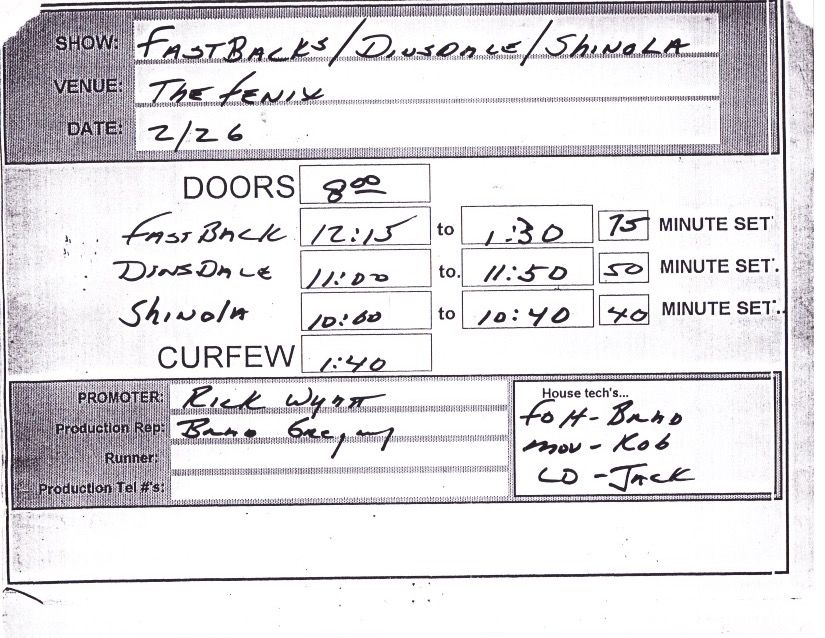 SHOW: FASTBACKS/DINSDALE/SHINOLA
VENUE: THE FENIX
DATE: 2/26
DOORS 8:00
FASTBACK 12:15 to 1:30 75 MINUTE SET
DINSDALE 11:00 to. 11:50 50 MINUTE SET.
SHINOLA 10:00 to 10:40 40 MINUTE SET..
CURFEW 1:40
PROMOTER: RICK WYNN
Production Rep: BRAD
Runner:
Production Tel #'s:
House tech's...
FOH - BRAD
MON - ROB
LD - JACK